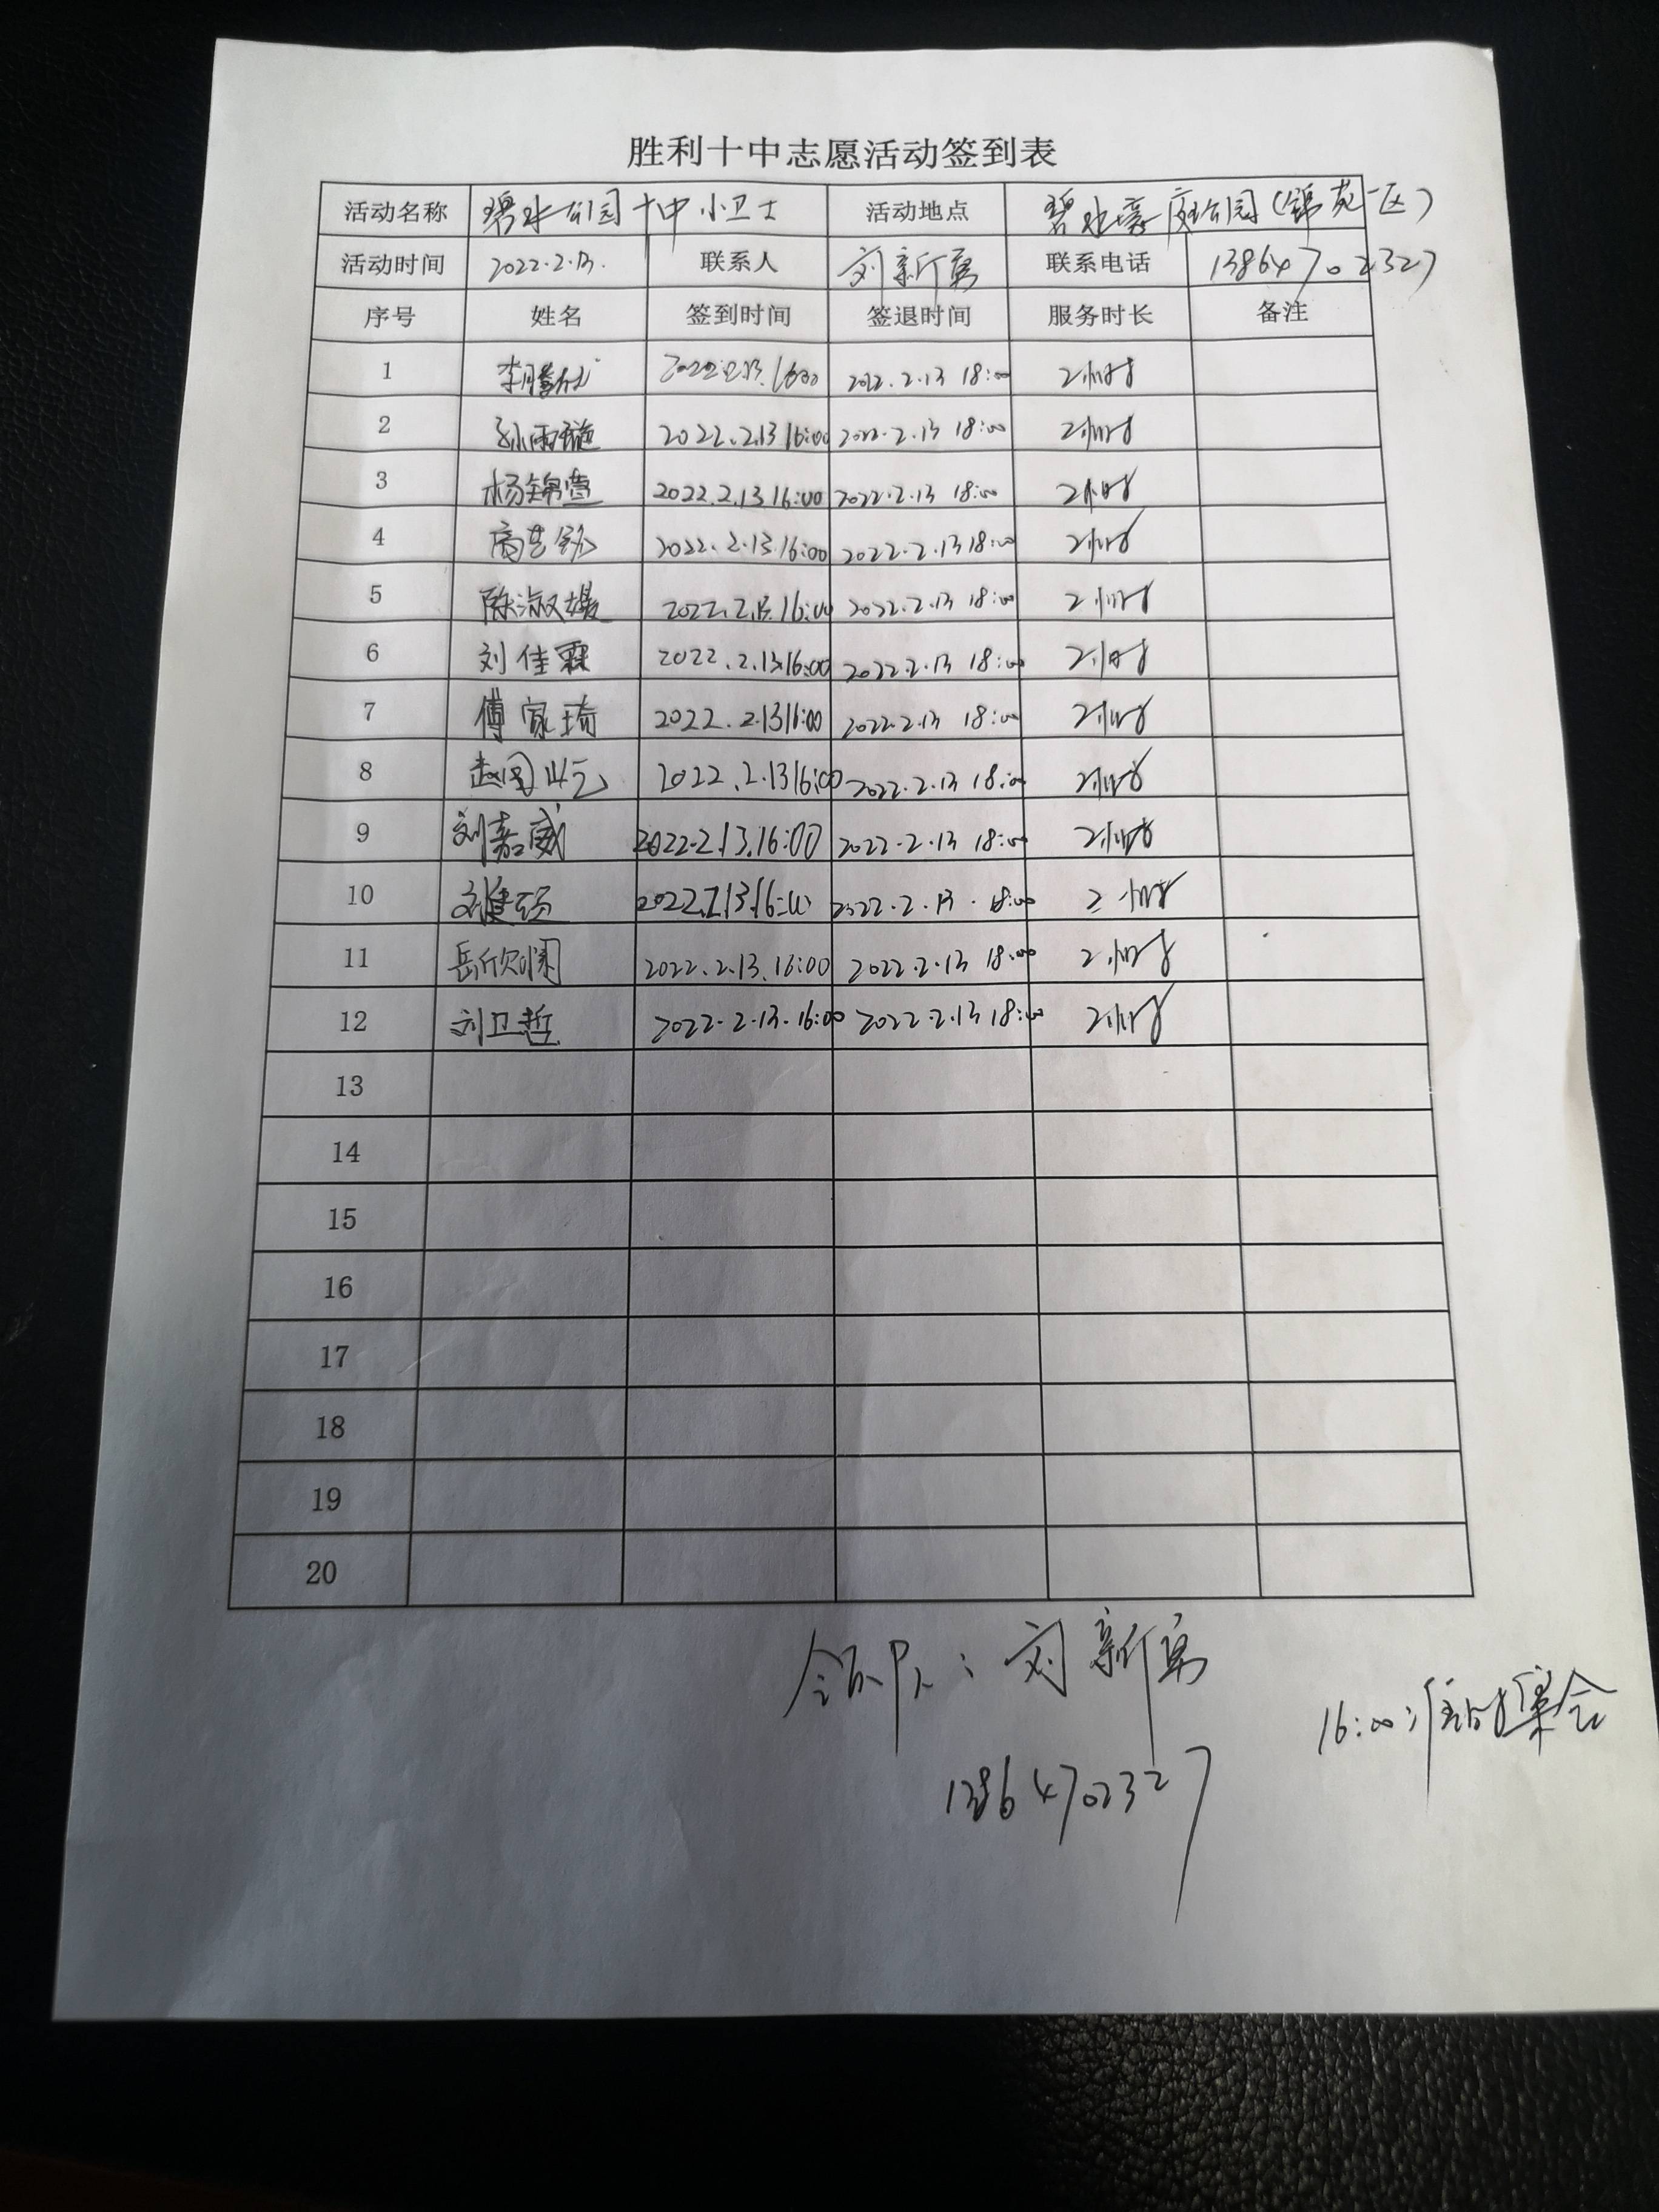 胜利十中志愿活动签到表
活动名称 碧水公园十中小卫士 活动地点 碧水豪庭公园(锦苑一区)
活动时间 2022.2.13. 联系人 刘新勇 联系电话 13864702327
序号 姓名 签到时间 签退时间 服务时长 备注
1 2022.2.13.16:00 2022.2.13 18:00 2小时
2 孙雨璇 2022.2.13 16:00 2022.2.13 18:00 2小时
3 杨锦萱 2022.2.13 16:00 2022.2.13 18:00 2小时
4 高艺铭 2022.2.13.16:00 2022.2.13 18:00 2小时
5 陈淑媛 2022.2.13.16:00 2022.2.13 18:00 2小时
6 刘佳霖 2022.2.13.16:00 2022.2.13 18:00 2小时
7 傅家琦 2022.2.13 16:00 2022.2.13 18:00 2小时
8 2022.2.13 16:00 2022.2.13 18:00 2小时
9 刘嘉威 2022.2.13.16:00 2022.2.13 18:00 2小时
10 2022.2.13.16:00 2022.2.13.18:00 2小时
11 岳欣澜 2022.2.13.16:00 2022.2.13 18:00 2小时
12 刘卫哲 2022.2.13.16:00 2022.2.13 18:00 2小时
13
14
15
16
17
18
19
20
领队:刘新勇
16:00准时集合
13864702327